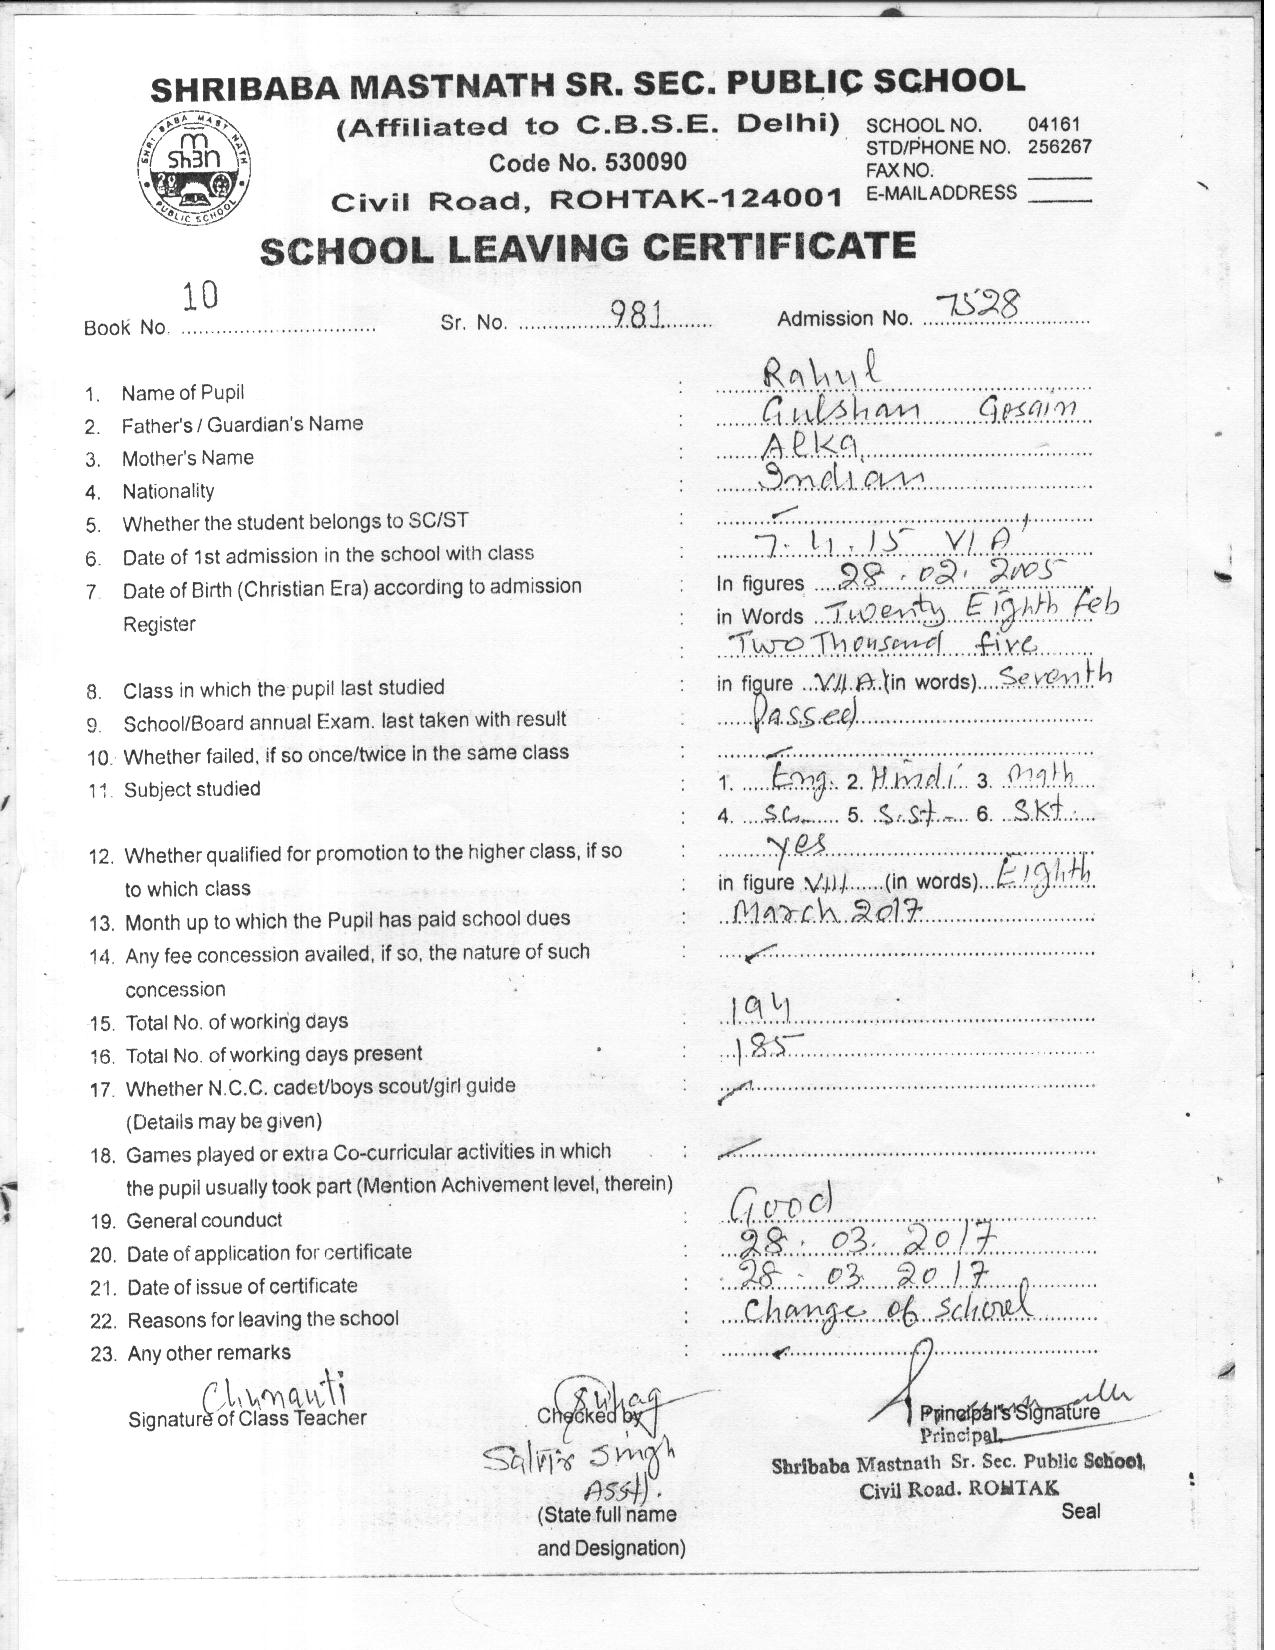 SHRIBABA MASTNATH SR. SEC. PUBLIC SCHOOL
(Affiliated to C.B.S.E. Delhi)
Code No. 530090
Civil Road, ROHTAK-124001
SCHOOL NO. 04161
STD/PHONE NO. 256267
FAX NO.
E-MAIL ADDRESS
SHRI BABA MAST NATH
PUBLIC SCHOOL
SCHOOL LEAVING CERTIFICATE
Book No. 10 Sr. No. 981 Admission No. 7528
1. Name of Pupil : Rahul
2. Father's / Guardian's Name : Gulshan Gosain
3. Mother's Name : Alka
4. Nationality : Indian
5. Whether the student belongs to SC/ST :
6. Date of 1st admission in the school with class : 7.4.15 VI A
7. Date of Birth (Christian Era) according to admission : In figures 28.02.2005
Register in Words Twenty Eighth Feb
: Two Thousand five
8. Class in which the pupil last studied : in figure VII A (in words) Seventh
9. School/Board annual Exam. last taken with result : Passed
10. Whether failed, if so once/twice in the same class :
11. Subject studied : 1. Eng. 2. Hindi 3. Math
: 4. Sc. 5. S.St. 6. Skt.
12. Whether qualified for promotion to the higher class, if so : yes
to which class : in figure VIII (in words) Eighth
13. Month up to which the Pupil has paid school dues : March 2017
14. Any fee concession availed, if so, the nature of such :
concession
15. Total No. of working days : 194
16. Total No. of working days present : 185
17. Whether N.C.C. cadet/boys scout/girl guide :
(Details may be given)
18. Games played or extra Co-curricular activities in which :
the pupil usually took part (Mention Achivement level, therein)
19. General counduct : Good
20. Date of application for certificate : 28.03.2017
21. Date of issue of certificate : 28.03.2017
22. Reasons for leaving the school : Change of School
23. Any other remarks :
Signature of Class Teacher
Checked by
Principal's Signature
Principal,
Singh
Asstt.
Shribaba Mastnath Sr. Sec. Public School,
Civil Road. ROHTAK
(State full name
Seal
and Designation)